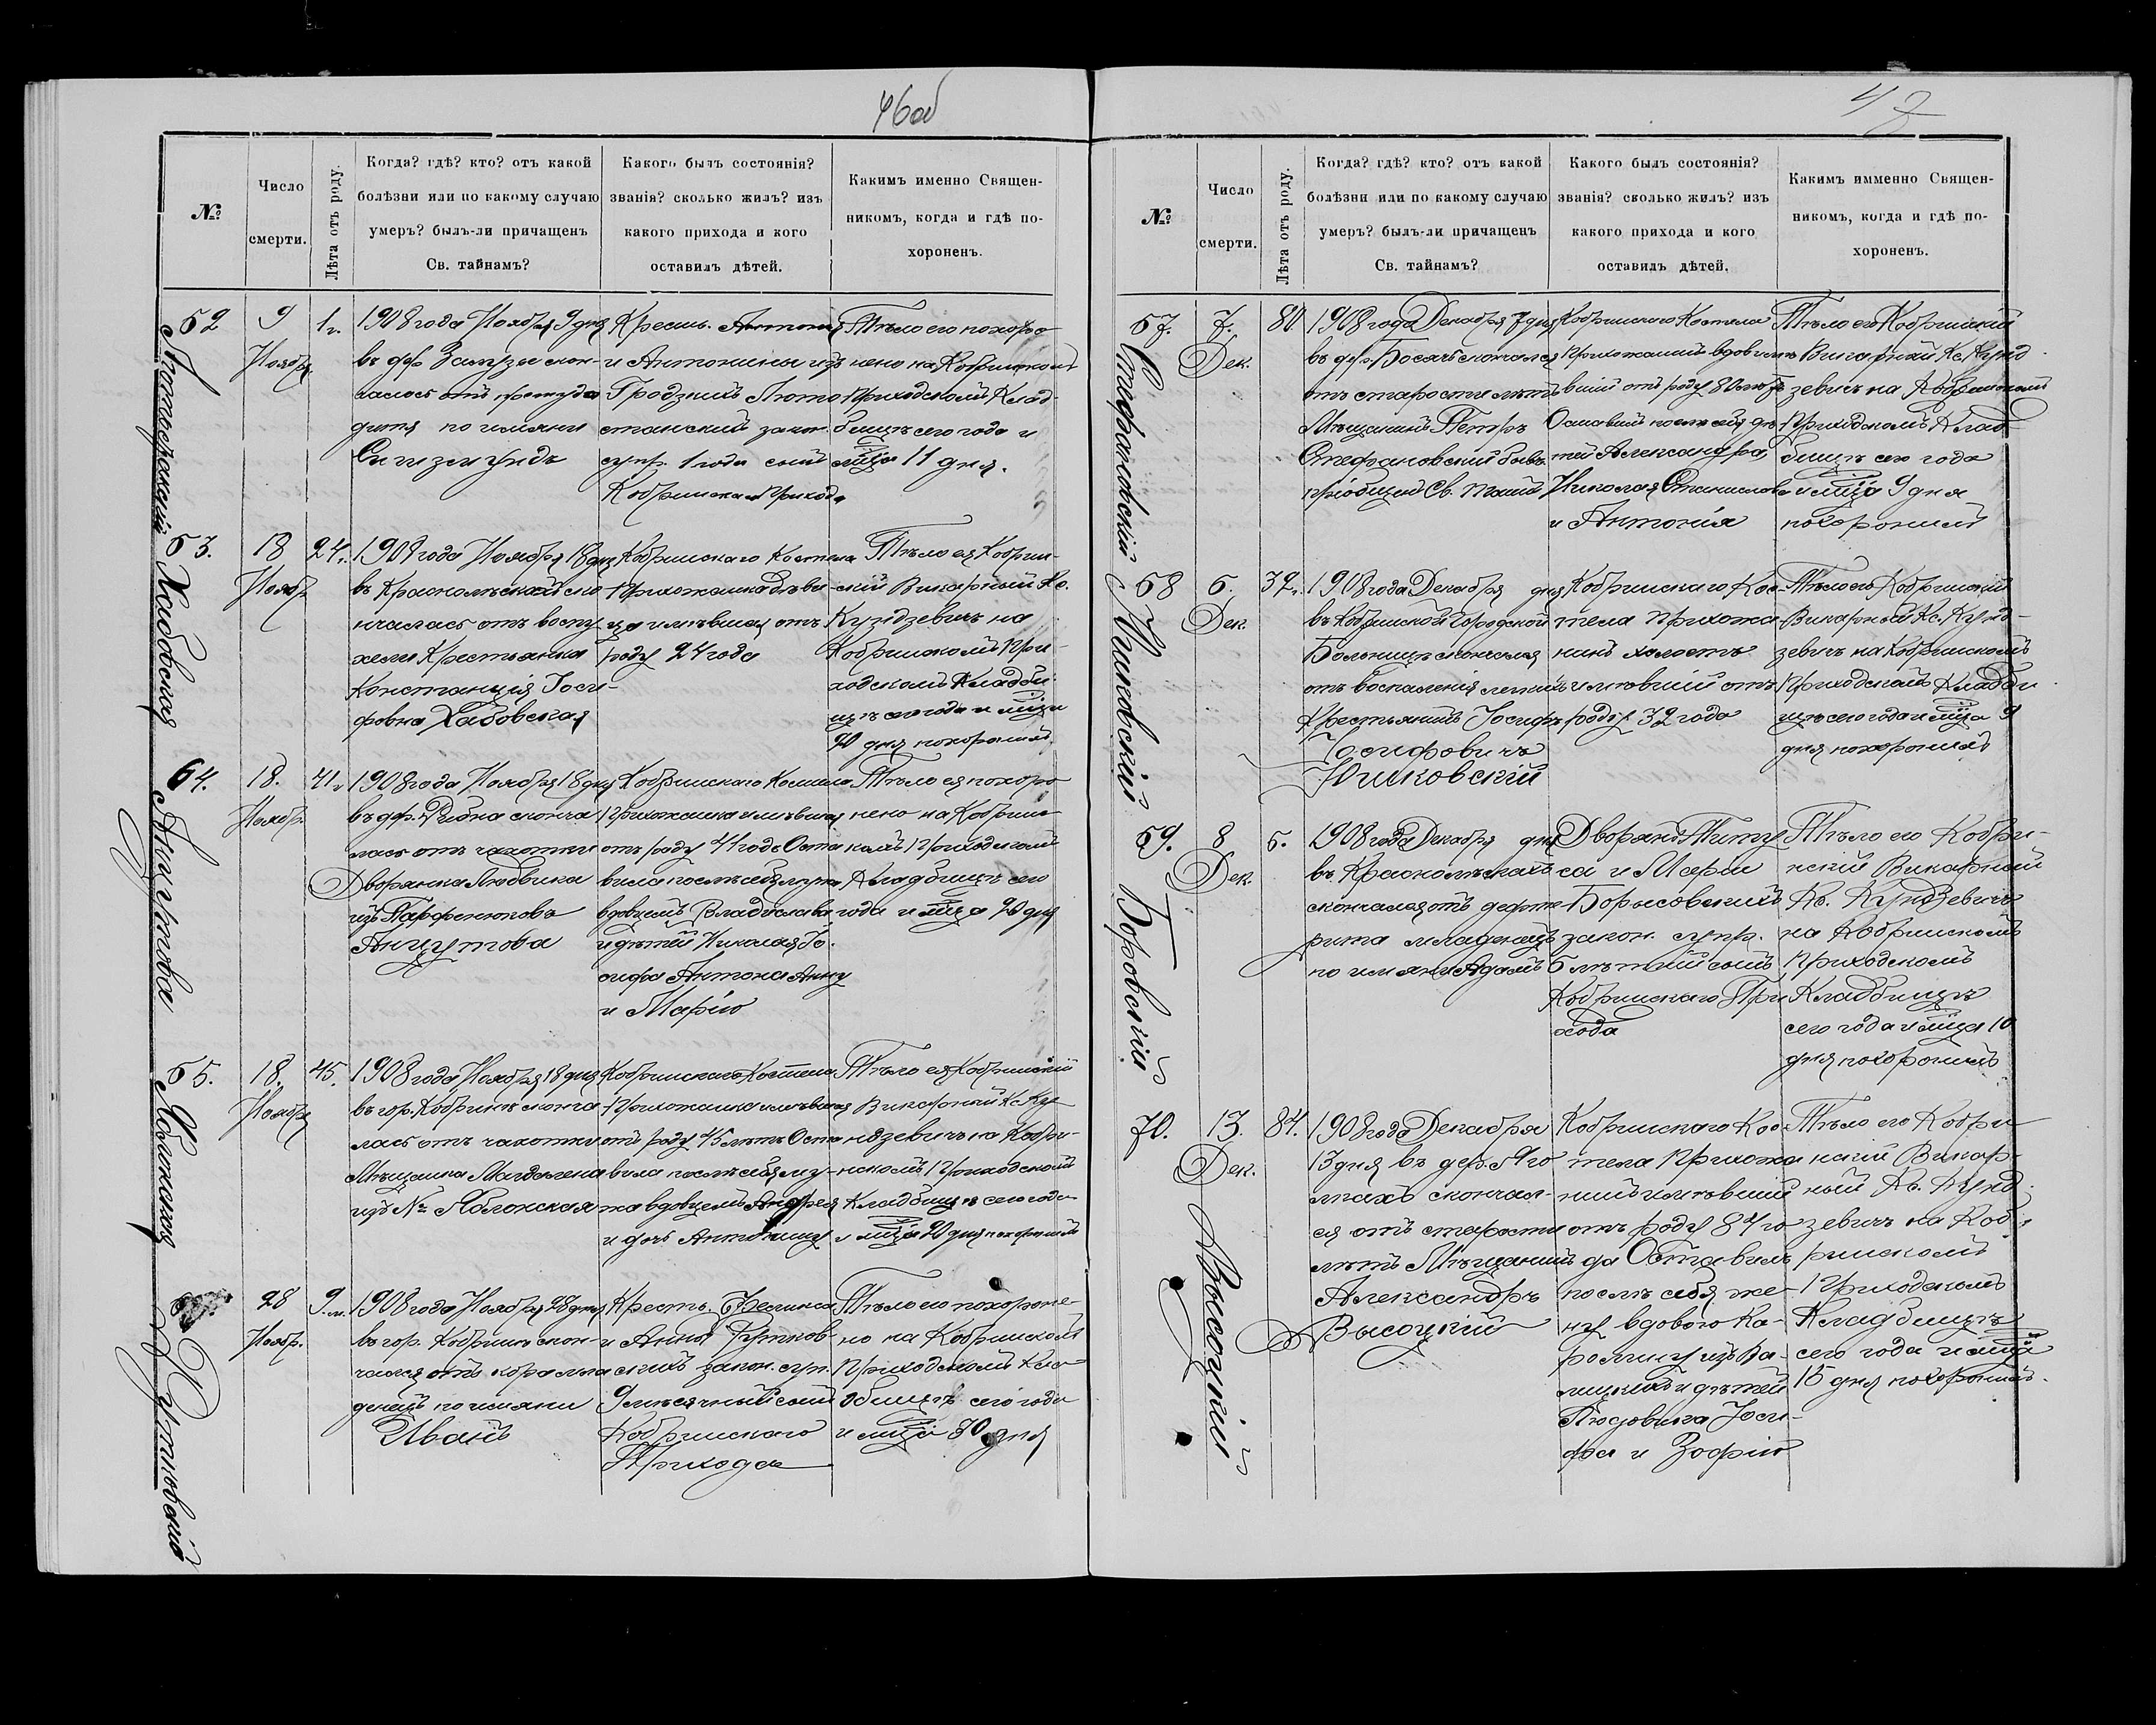 46об
№
Число
смерти.
Лѣта отъ роду.
Когда? гдѣ? кто? отъ какой
болѣзни или по какому случаю
умеръ? былъ-ли причащенъ
Св. тайнамъ?
Какого былъ состоянія?
званія? сколько жилъ? изъ
какого прихода и кого
оставилъ дѣтей.
Какимъ именно Священ-
никомъ, когда и гдѣ по-
хороненъ.
9
Ноября
1 г.
1908 года Ноября 9 дня
въ дер. скон-
чалось отъ простуды
дитя по имяни
Сигизмундъ
Крест.
и Антонины изъ
Гродзкихъ
закон.
супр. 1 года сынъ
Кобринскаго Прихода
Тѣло его похоро
нено на Кобринскомъ
Приходскомъ Клад
бищѣ сего года и
мца 11 дня.
18
Ноябр
24.
1908 года Ноября 18 дня
скон
чалась отъ
Крестьянка
Констанція Іоси-
фовна Хабовская
Кобринскаго Костела
Прихожанка дѣви
ца имѣвшая отъ
роду 24 года
Тѣло ея Кобрин-
скій Викарный Кс.
Кундзевичъ на
Кобринскомъ При-
ходскомъ Кладби
щѣ сего года и мца
20 дня похоронилъ.
Хабовская
64.
18.
Ноябр.
41
1908 года Ноября 18 дня
въ дер. Рыбна сконча
лась отъ чахотки
Дворянка Людвика
изъ Парфенюковъ
Анцутова
Кобринскаго Костела
Прихожанка имѣвшая
отъ роду 41 годъ Оста
вила послѣ себя мужа
вдовцемъ Владислава
и дѣтей Николая Іо-
сифа Антона Анну
и Марію
Тѣло ея похоро
нено на Кобрин
скомъ Приходскомъ
Кладбищѣ сего
года и мца 20 дня
Анцутова
65.
18.
Ноябр
45.
1908 года Ноября 18 дня
въ гор. Кобринѣ сконча
лась отъ чахотки
Мѣщанка Магдалена
изъ № Яблонская
Кобринскаго Костела
Прихожанка имѣвшая
отъ роду 45 лѣтъ Оста
вила послѣ себя му-
жа вдовцемъ Андрея
и дочь Антонину
Тѣло ея Кобринскій
Викарный Кс. Ку
ндзевичъ на Кобри-
нскомъ Приходскомъ
Кладбищѣ сего года
и мца 20 дня похоронилъ
Яблонская
28
Ноябр.
9 м.
1908 года Ноября 28 дня
въ гор. Кобринѣ скон-
чался отъ кора мла
денецъ по имяни
Иванъ
Крест. Феликса
и Анны Рутков-
скихъ закон. суп.
9 мѣсячный сынъ
Кобринскаго
Прихода
Тѣло его похороне-
но на Кобринскомъ
Приходскомъ Кла
дбищѣ сего года
и мца 30 дня
Рутковскій
47
№
Число
смерти.
Лѣта отъ роду.
Когда? гдѣ? кто? отъ какой
болѣзни или по какому случаю
умеръ? былъ-ли причащенъ
Св. тайнамъ?
Какого былъ состоянія?
званія? сколько жилъ? изъ
какого прихода и кого
оставилъ дѣтей.
Какимъ имменно Священ-
никомъ, когда и гдѣ по-
хороненъ.
67.
7.
Дек.
80
1908 года Декабря 7 дня
въ дер. Босячъ скончался
отъ старости лѣтъ
Мѣщанинъ Петръ
Стефановскій бывъ
пріобщенъ Св. Тайнъ
Кобринскаго Костела
Прихожанинъ вдовъ имѣ
вшій отъ роду 80 лѣтъ
Оставилъ послѣ себя дѣ-
тей Александра,
Николая Станислава
и Антонія
Тѣло его Кобринскій
Викарный Кс. Кунд
зевичъ на Кобринскомъ
Приходскомъ Клад
бищѣ сего года
и мца 9 дня
похоронилъ
Стефановскій
68
6.
Дек.
32.
1908 года Декабря дня
въ Кобринской Городской
Больницѣ скончался
отъ воспаленія легкихъ
Крестьянинъ Іосифъ
Іосифовичъ
Юшковскій
Кобринскаго Кос-
тела Прихожа
нинъ холостъ
имѣвшій отъ
роду 32 года
Тѣло его Кобринскій
Викарный Кс. Кунд-
зевичъ на Кобринскомъ
Приходскомъ Кладби
щѣ сего года и мца 9
дня похоронилъ
Юшковскій
69.
8
Дек.
6.
1908 года Декабря дня
скончался отъ дифте
рита младенецъ
по имяни Адамъ
Дворянъ Титу
са и Маріи
Борысовскихъ
закон. супр.
6 лѣтній сынъ
Кобринскаго При
хода
Тѣло его Кобри-
нскій Викарный
Кс. Кундзевичъ
на Кобринскомъ
Приходскомъ
Кладбищѣ
сего года и мца 10
дня похоронилъ
70.
13.
Дек.
84.
1908 года Декабря
13 дня въ дер.
скончал-
ся отъ старости
лѣтъ Мѣщанинъ
Александръ
Высоцкій
Кобринскаго Кос
тела Прихожа
нинъ имѣвшій
отъ роду 84 го
да Оставилъ
послѣ себя же
ну вдовою Ка-
ролину изъ Ва-
лицкихъ и дѣтей
Людовика Іоси-
фа и Зофію
Тѣло его Кобри
нскій Викар-
ный Кс. Кунд-
зевичъ на Коб-
ринскомъ
Приходскомъ
Кладбищѣ
сего года и мца
15 дня похоронилъ.
Высоцкій